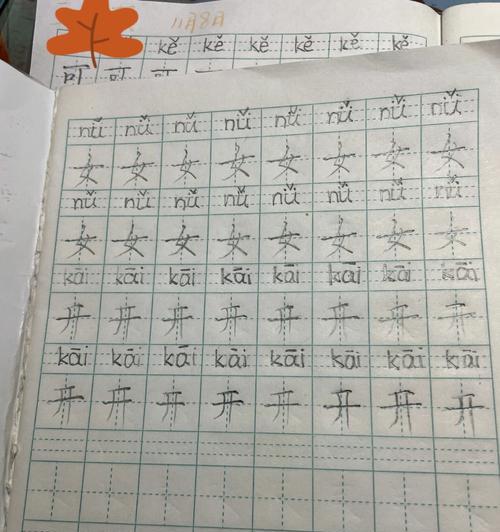 11月8日
kě kě kě kě kě kě
可 可 可
nǚ nǚ nǚ nǚ nǚ nǚ nǚ nǚ
女 女 女 女 女 女 女 女
nǚ nǚ nǚ nǚ nǚ nǚ nǚ nǚ
女 女 女 女 女 女 女 女
kāi kāi kāi kāi kāi kāi kāi kāi
开 开 开 开 开 开 开 开
kāi kāi kāi kāi kāi kāi kāi kāi
开 开 开 开 开 开 开 开